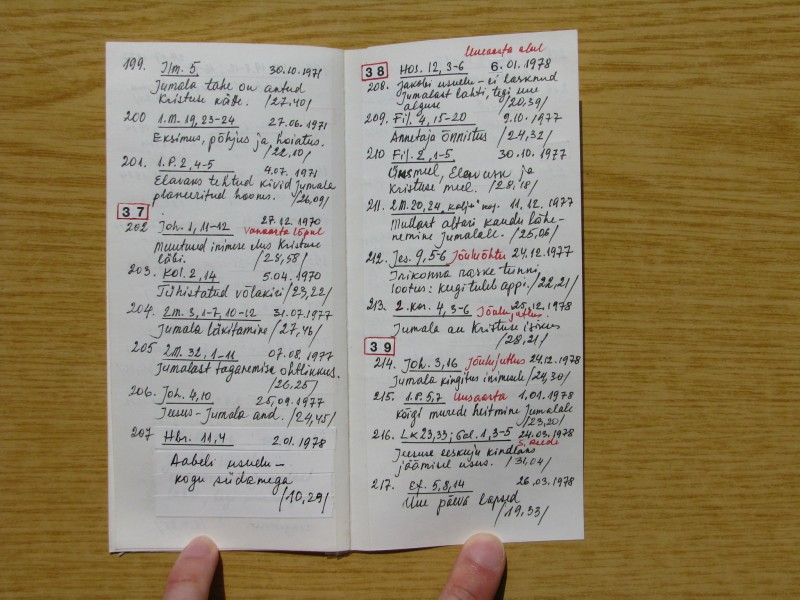 199. Ilm. 5 30.10.1971
Jumala tahe on antud
Kristuse kätte. /27,40/
200 1.M. 19,23-24 27.06.1971
Eksimus, põhjus ja hoiatus.
/22,10/
201. 1.P. 2,4-5 4.07.1971
Elavaks tehtud kivid Jumala
planeeritud hoones. /26,09/
37
202 Joh. 1,11-12 27.12.1970
Vanaaasta lõpul
Muutused inimese elus Kristuse
läbi. /28,58/
203. Kol. 2,14 5.04.1970
Tühistatud võlakiri /23,22/
204. 2M. 3,1-7,10-12 31.07.1977
Jumala läkitamine /27,46/
205 2M. 32,1-11 07.08.1977
Jumalast taganemise ohtlikkus.
/26,25/
206. Joh. 4,10 25.09.1977
Jeesus-Jumala and. /24,45/
207 Hbr. 11,4 2.01.1978
Aabeli usuelu-
kogu südamega
/10,29/
Uueaasta alul
38 Hos. 12,3-6 6.01.1978
208. Jakobi usuelu - ei lasknud
Jumalast lahti, tegi uue
alguse /20,39/
209. Fil. 4,15-20 9.10.1977
Annetaja õnnistus /24,32/
210 Fil. 2,1-5 30.10.1977
Üksmeel, Elav usk ja
Kristuse meel. /28,18/
211. 2M. 20,24 11.12.1977
Mullast altari kaudu lähe-
nemine Jumalale. /25,06/
212. Jes. 9,5-6 Jõuluõhtu 24.12.1977
Inikonna raske tunni
lootus: keegi tuleb appi. /22,21/
213. 2.Kor. 4,3-6 Jõulujutlus. 25.12.1978
Jumala au Kristuse isikus
/28,21/
39
214. Joh. 3,16 Jõulujutlus 24.12.1978
Jumala kingitus inimesele /29,30/
215. 1.P. 5,7 Uusaasta 1.01.1978
kõigi murede heitmine Jumalale
/23,20/
216. Lk 23,33; Gal. 1,3-5 24.03.1978
S. Reede
Jeesuse eeskuju kindlaks
jäämisel usus. /31,04/
217. Ef. 5,8,14 26.03.1978
Uue päeva lapsed
/19,33/